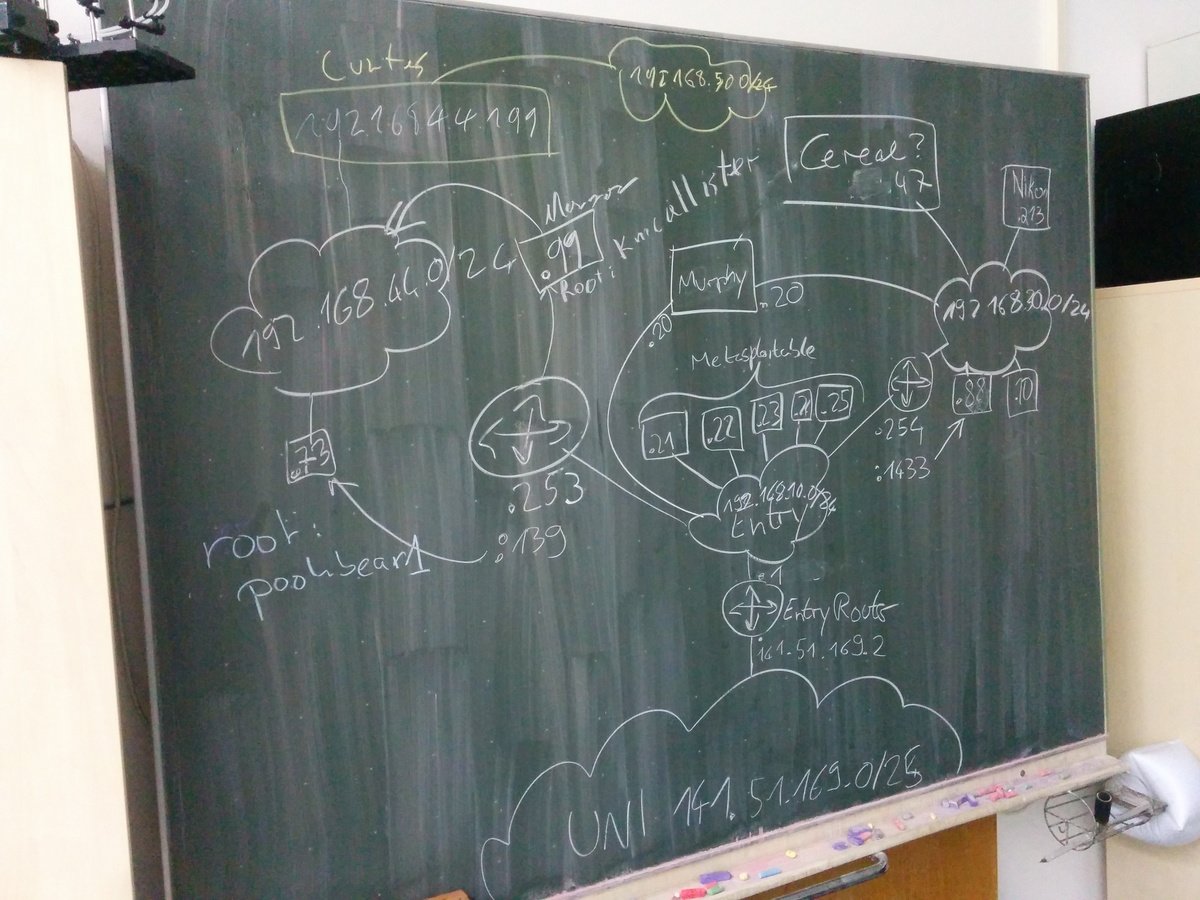 Curtis
192.168.44.199
192.168.50.0/24
Cereal?
47
Nikon
.213
.99
Root:
192.168.44.0/24
Murphy
.20
.20
192.168.30.0/24
Metasploitable
.21
.22
.23
.25
.254
.88
.10
:1433
.73
.253
:139
192.168.10.0/24
Entry
root:
poohbear1
.1
Entry Router
141.51.169.2
UNI 141.51.169.0/25